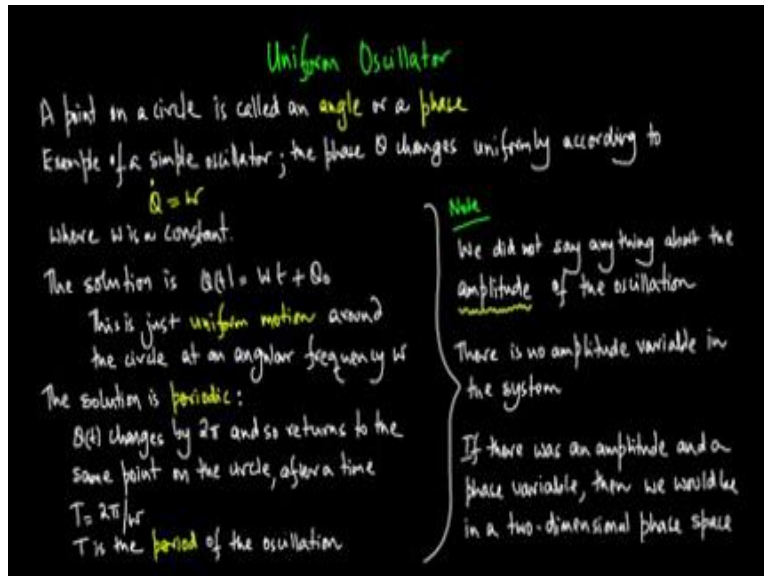 Uniform Oscillator
A point on a circle is called an angle or a phase
Example of a simple oscillator; the phase θ changes uniformly according to
θ̇ = ω
where ω is a constant.
The solution is θ(t) = ωt + θ₀
This is just uniform motion around
the circle at an angular frequency ω
The solution is periodic:
θ(t) changes by 2π and so returns to the
same point on the circle, after a time
T = 2π/ω
T is the period of the oscillation
Note
We did not say anything about the
amplitude of the oscillation
There is no amplitude variable in
the system
If there was an amplitude and a
phase variable, then we would be
in a two-dimensional phase space